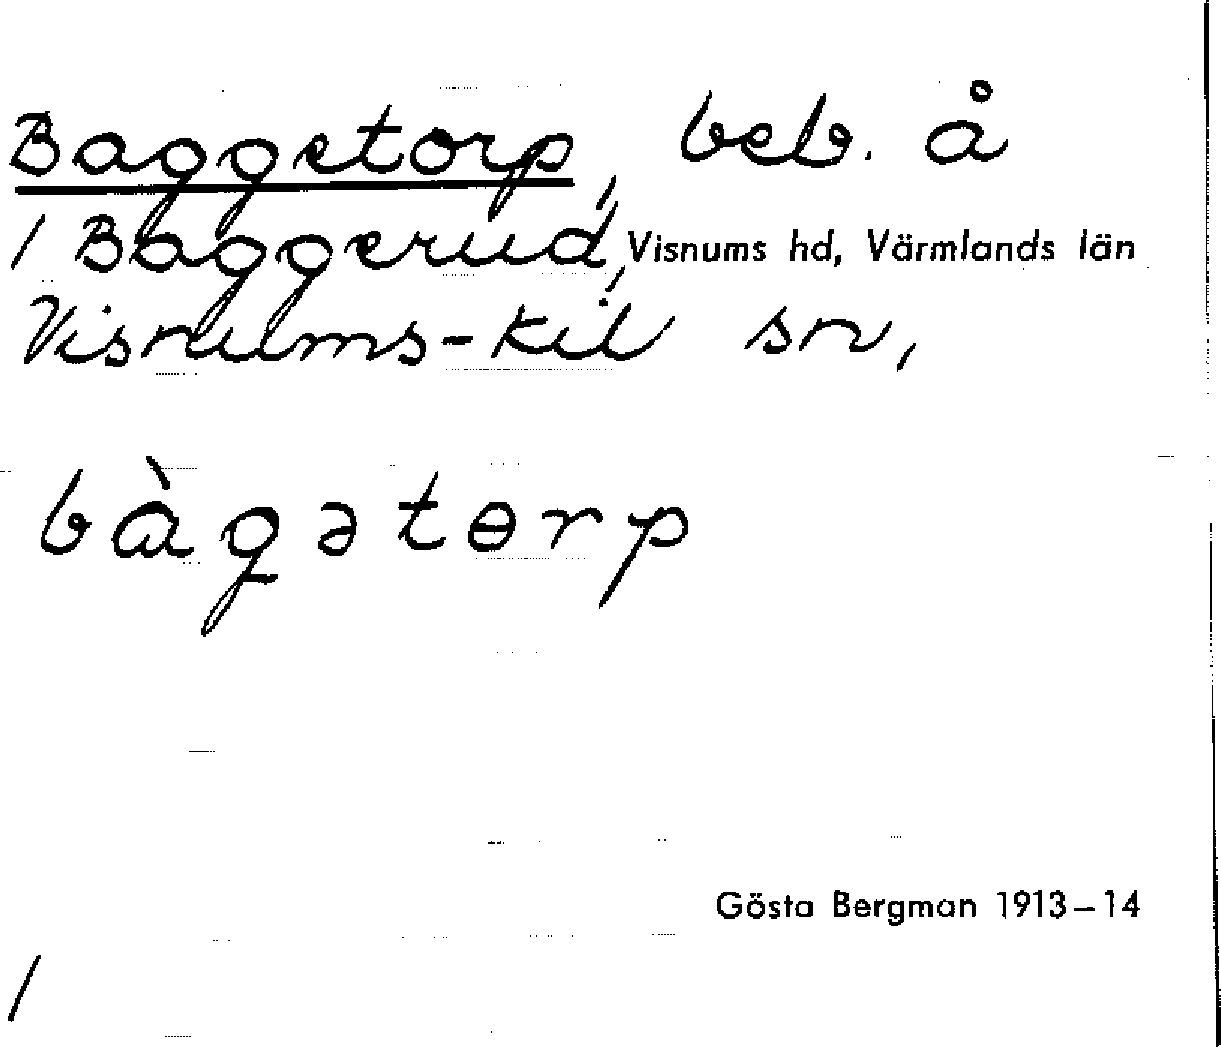 Baggetorp, beb. å
1 Baggerud, Visnums hd, Värmlands län
Visnums-Kil sn,
bàgətɵrp
Gösta Bergman 1913–14
/